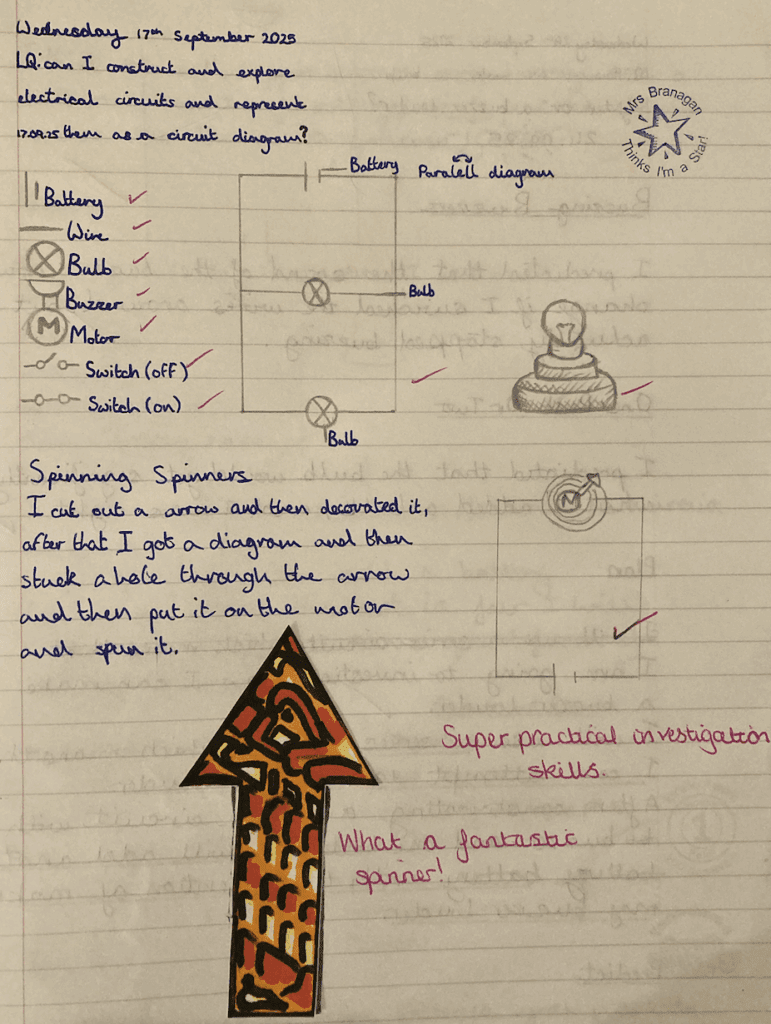 Wednesday 17th September 2025
LQ: can I construct and explore
electrical circuits and represent
17.09.25 them as a circuit diagram?
Mrs Branagan
Thinks I'm a Star!
Battery
Paralell diagram
Battery
Wire
Bulb
Buzzer
M Motor
Switch (off)
Switch (on)
Bulb
Bulb
Spinning Spinners
I cut out a arrow and then decorated it,
after that I got a diagram and then
stuck a hole through the arrow
and then put it on the motor
and spun it.
M
Super practical investigation
skills.
What a fantastic
spinner!